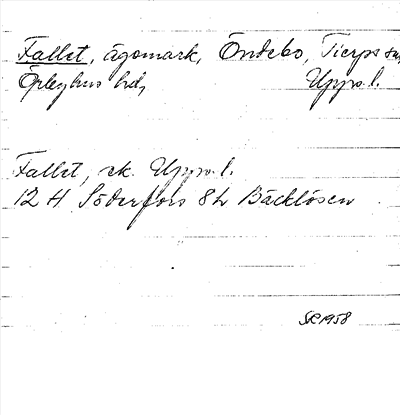 Fallet, ägomark, Öndebo, Tierps sn,
Örbyhus hd, Upps. l.
Fallet, ek. Upps. l.
12 H Söderfors 8h Bäcklösen
SR 1958